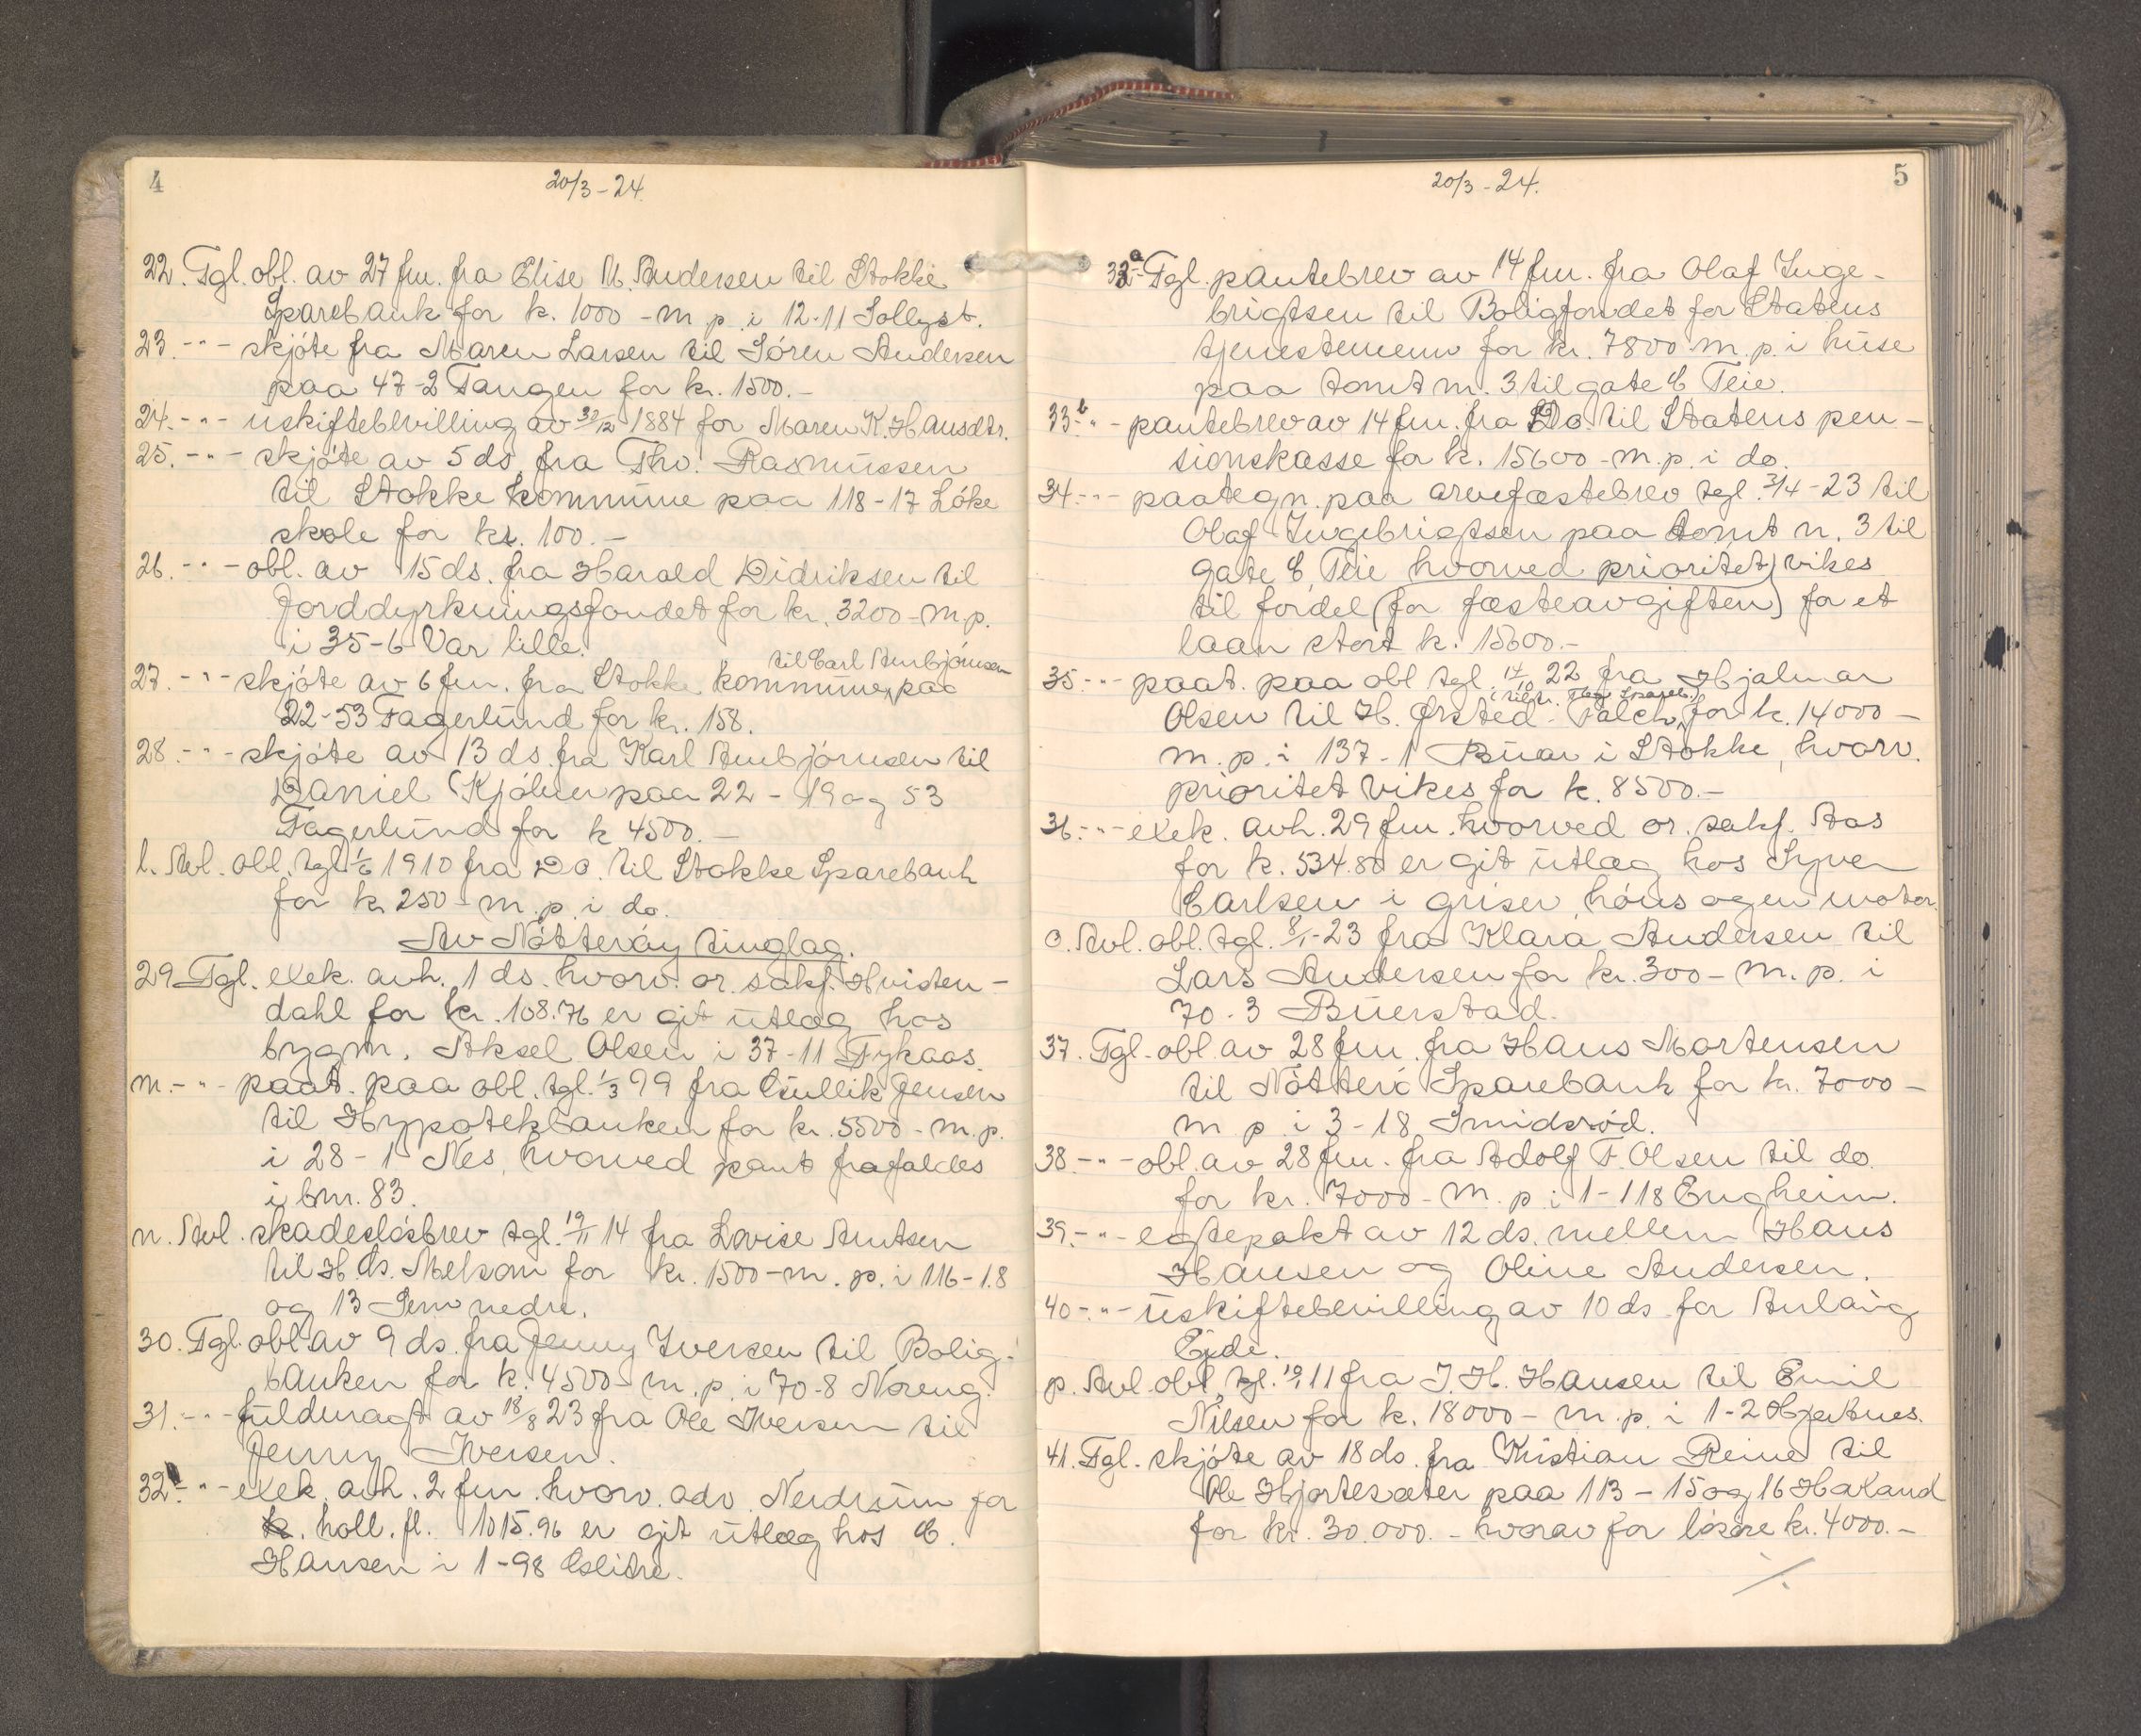 4
20/3-24.
22. Tgl. obl. av 27 fm. fra Elise M. Andersen til Stokke
Sparebank for k. 1000 - m. p. i 12-11 Sollyst.
23. -"- skjöte fra Maren Larsen til Sören Andersen
paa 47-2 Tangen for kr. 1500.-
24. -"- uskiftebevilling av 30/12 1884 for Maren K. Hansdtr.
25. -"- skjöte av 5 ds. fra Thv. Rasmussen
til Stokke kommune paa 118-17 Löke
skole for kr. 100.-
26. -"- obl. av 15 ds. fra Harald Didriksen til
Jorddyrkningsfondet for kr. 3200 - m. p.
i 35-6 Var lille.
til Carl Arnbjörnsen
27. -"- skjöte av 6 fm. fra Stokke kommune, paa
22-53 Fagerlund for kr. 158.
28. -"- skjöte av 13 ds. fra Karl Arnbjörnsen til
Daniel Kjölner paa 22-19 og 53
Fagerlund for k 4500.-
l. Avl. obl. tgl. 1/6 1910 fra Do. til Stokke Sparebank
for kr 250 - m. p. i do.
Av Nötteröy tinglag.
29. Tgl. exek. avh. 1 ds. hvorv. or. sakf. Hvisten-
dahl for kr. 108.76 er git utlæg hos
bygm. Aksel Olsen i 37-11 Fykaas.
m. -"- paat. paa obl. tgl. 1/3 99 fra Gullik Jensen
til Hypotekbanken for kr. 5500 - m. p.
i 28-1 Nes, hvorved pant frafaldes
i bnr. 83.
n. Avl. skadeslösbrev tgl. 19/11 14 fra Lovise Arntsen
til H. Melsom for kr. 1500 - m. p. i 116-1.8
og 13 Sem nedre.
30. Tgl. obl. av 9 ds. fra Jenny Iversen til Bolig-
banken for k. 4500 - m. p. i 70-8 Noreng.
31. -"- fuldmagt av 18/8 23 fra Ole Iversen til
Jenny Iversen.
32. -"- exek. avh. 2 fm. hvorv. adv. Nerdrum for
kr. holl. fl. 1015.96 er git utlæg hos C.
Hansen i 1-98 Solitre.
5
20/3-24.
33a -"- Tgl. pantebrev av 14 fm. fra Olaf Inge-
brigtsen til Boligfondet for Statens
tjenestemenn for kr. 7800 m. p. i huse
paa tomt nr. 3 til gate C Teie.
33b -"- pantebrev av 14 fm. fra Do. til Statens pen-
sionskasse for k. 15600 - m. p. i do.
34. -"- paategn. paa arvefæstebrev tgl. 3/4-23 til
Olaf Ingebrigtsen paa tomt n. 3 til
gate C Teie hvorved prioritet vikes
til fordel (for fæsteavgiften) for et
laan stort k. 15600.-
35. -"- paat. paa obl tgl. 14/10 22 fra Hjalmar
Olsen til H. Örsted-Falch, for k. 14000 -
m. p. i 137-1 Buar i Stokke, hvorv.
prioritet vikes for k. 8500.-
36. -"- exek. avh. 29 fm. hvorved or. sakf. Aas
for k. 534.80 er git utlæg hos Syver
Carlsen i griser, höns og en motor.
o. Avl. obl. tgl. 8/1-23 fra Klara Andersen til
Lars Andersen for kr. 300 - m. p. i
70-3 Buerstad.
37. Tgl. obl. av 28 fm. fra Hans Mortensen
til Nötterö Sparebank for kr. 7000 -
m. p. i 3-18 Smidsröd.
38. -"- obl. av 28 fm. fra Adolf F. Olsen til do.
for kr. 7000 - m. p. i 1-118 Engheim.
39. -"- egtepakt av 12 ds. mellem Hans
Hansen og Oline Andersen.
40. -"- uskiftebevilling av 10 ds. for Anlaug
Ejde.
p. Avl. obl. tgl. 11 fra J. H. Hansen til Emil
Nilsen for k. 18000 - m. p. i 1-2 Hjertnes.
41. Tgl. skjöte av 18 ds. fra Kristian Reine til
Ole Hjortesæter paa 113-15 og 16 Haland
for kr. 30.000. - hvorav for lösöre kr. 4000.-
./.